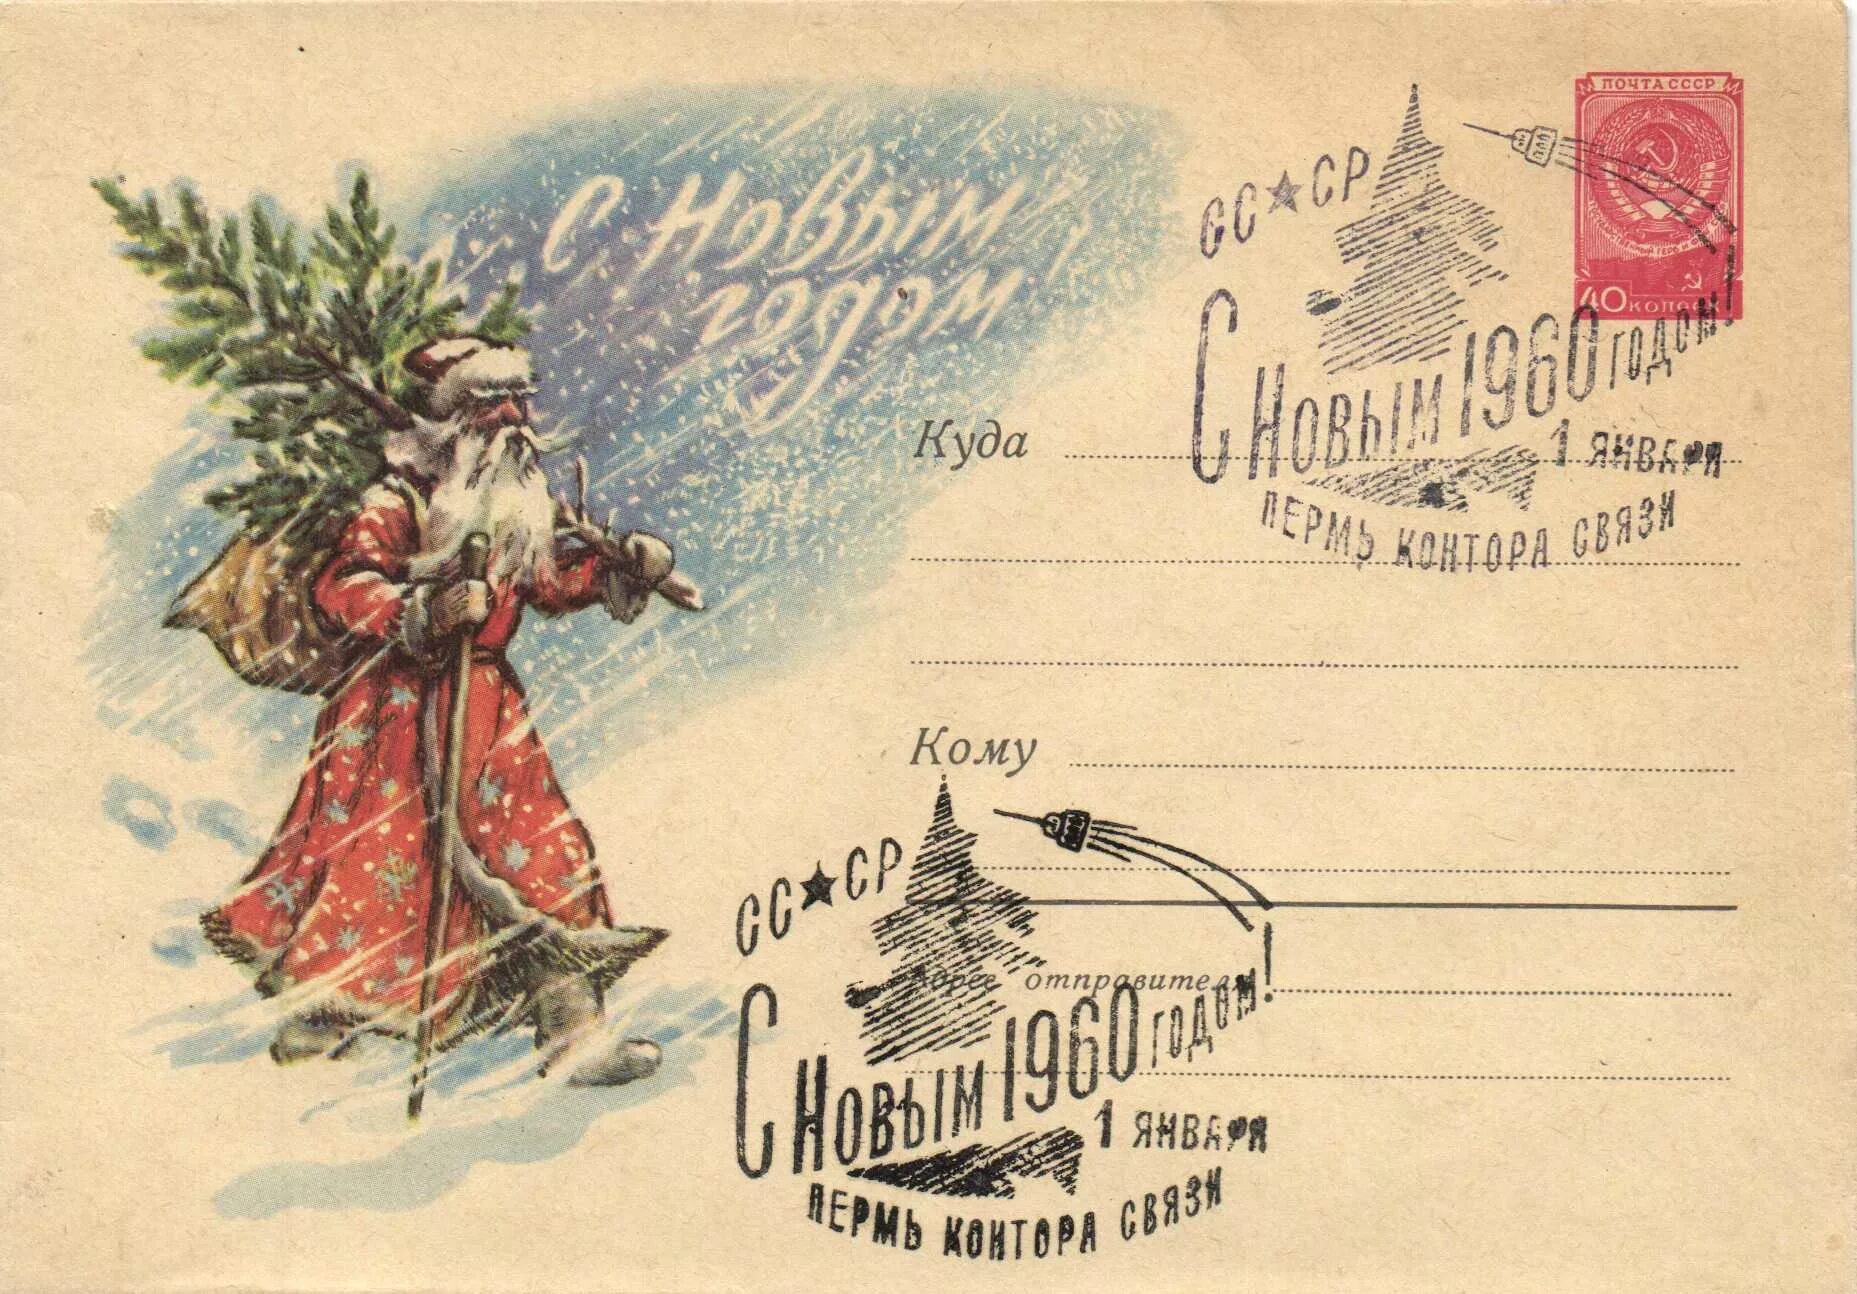 С Новым
годом!
ПОЧТА СССР
40 КОПЕЕК
СС★СР
С НОВЫМ 1960 ГОДОМ!
1 ЯНВАРЯ
ПЕРМЬ КОНТОРА СВЯЗИ
Куда
Кому
СС★СР
Адрес отправителя
С НОВЫМ 1960 ГОДОМ!
1 ЯНВАРЯ
ПЕРМЬ КОНТОРА СВЯЗИ